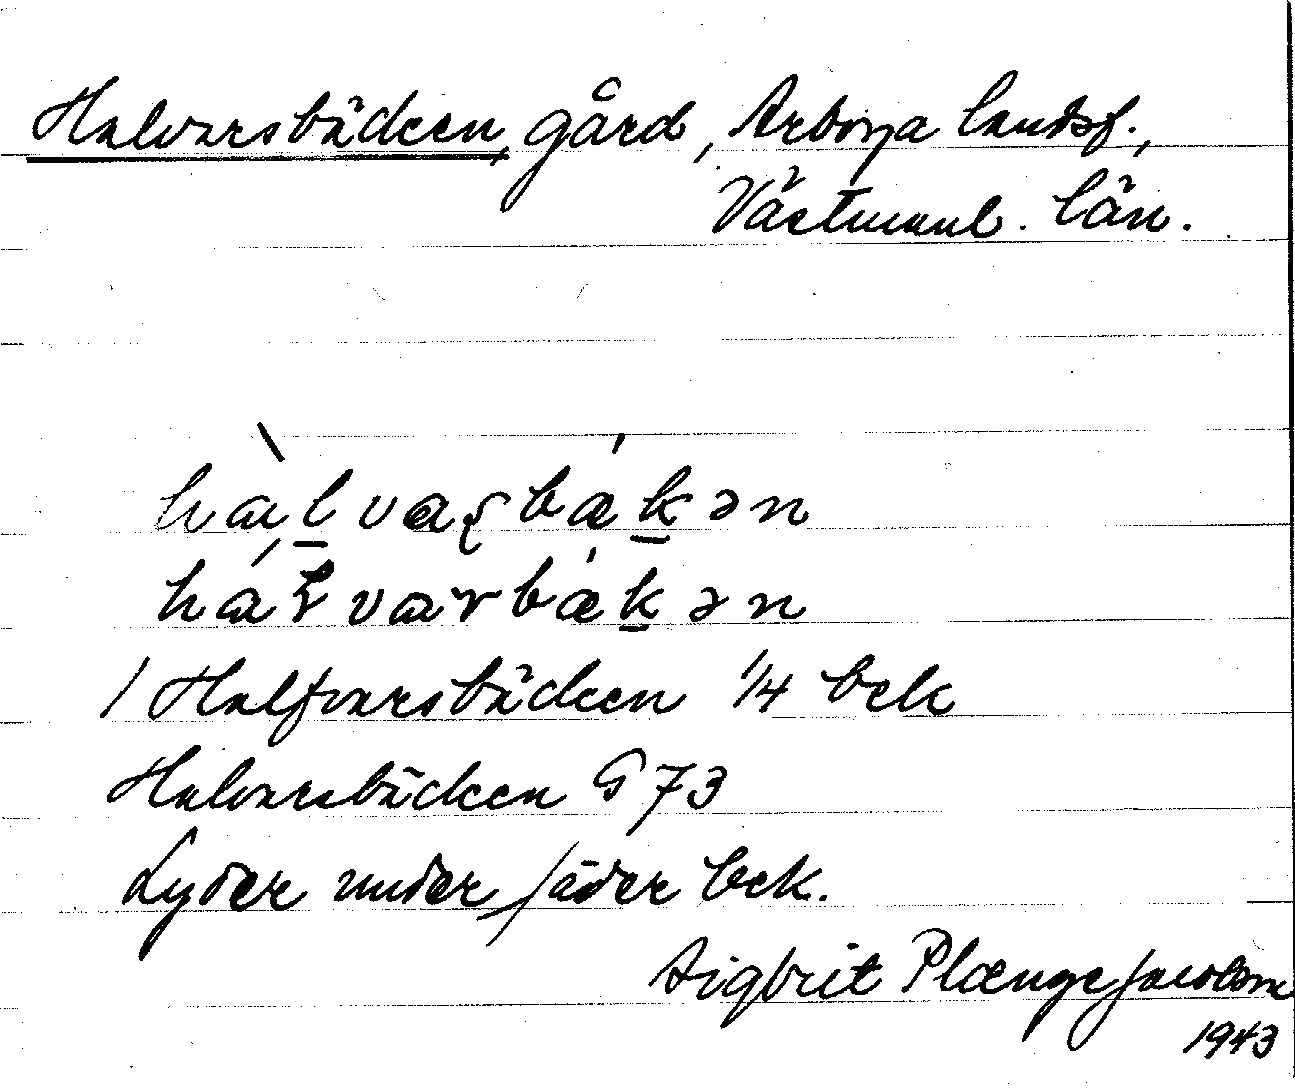 Halvarsbäcken, gård, Arboga landsf.,
Västmanl. län.
hàl̲varbǽk̲ən
hálvarbǽk̲ən
1 Halfvarsbäcken 1/4 bek
Halvarsbäcken G 73
Lyder under Jäder bek.
Sigbrit Plænge Jacobson
1943